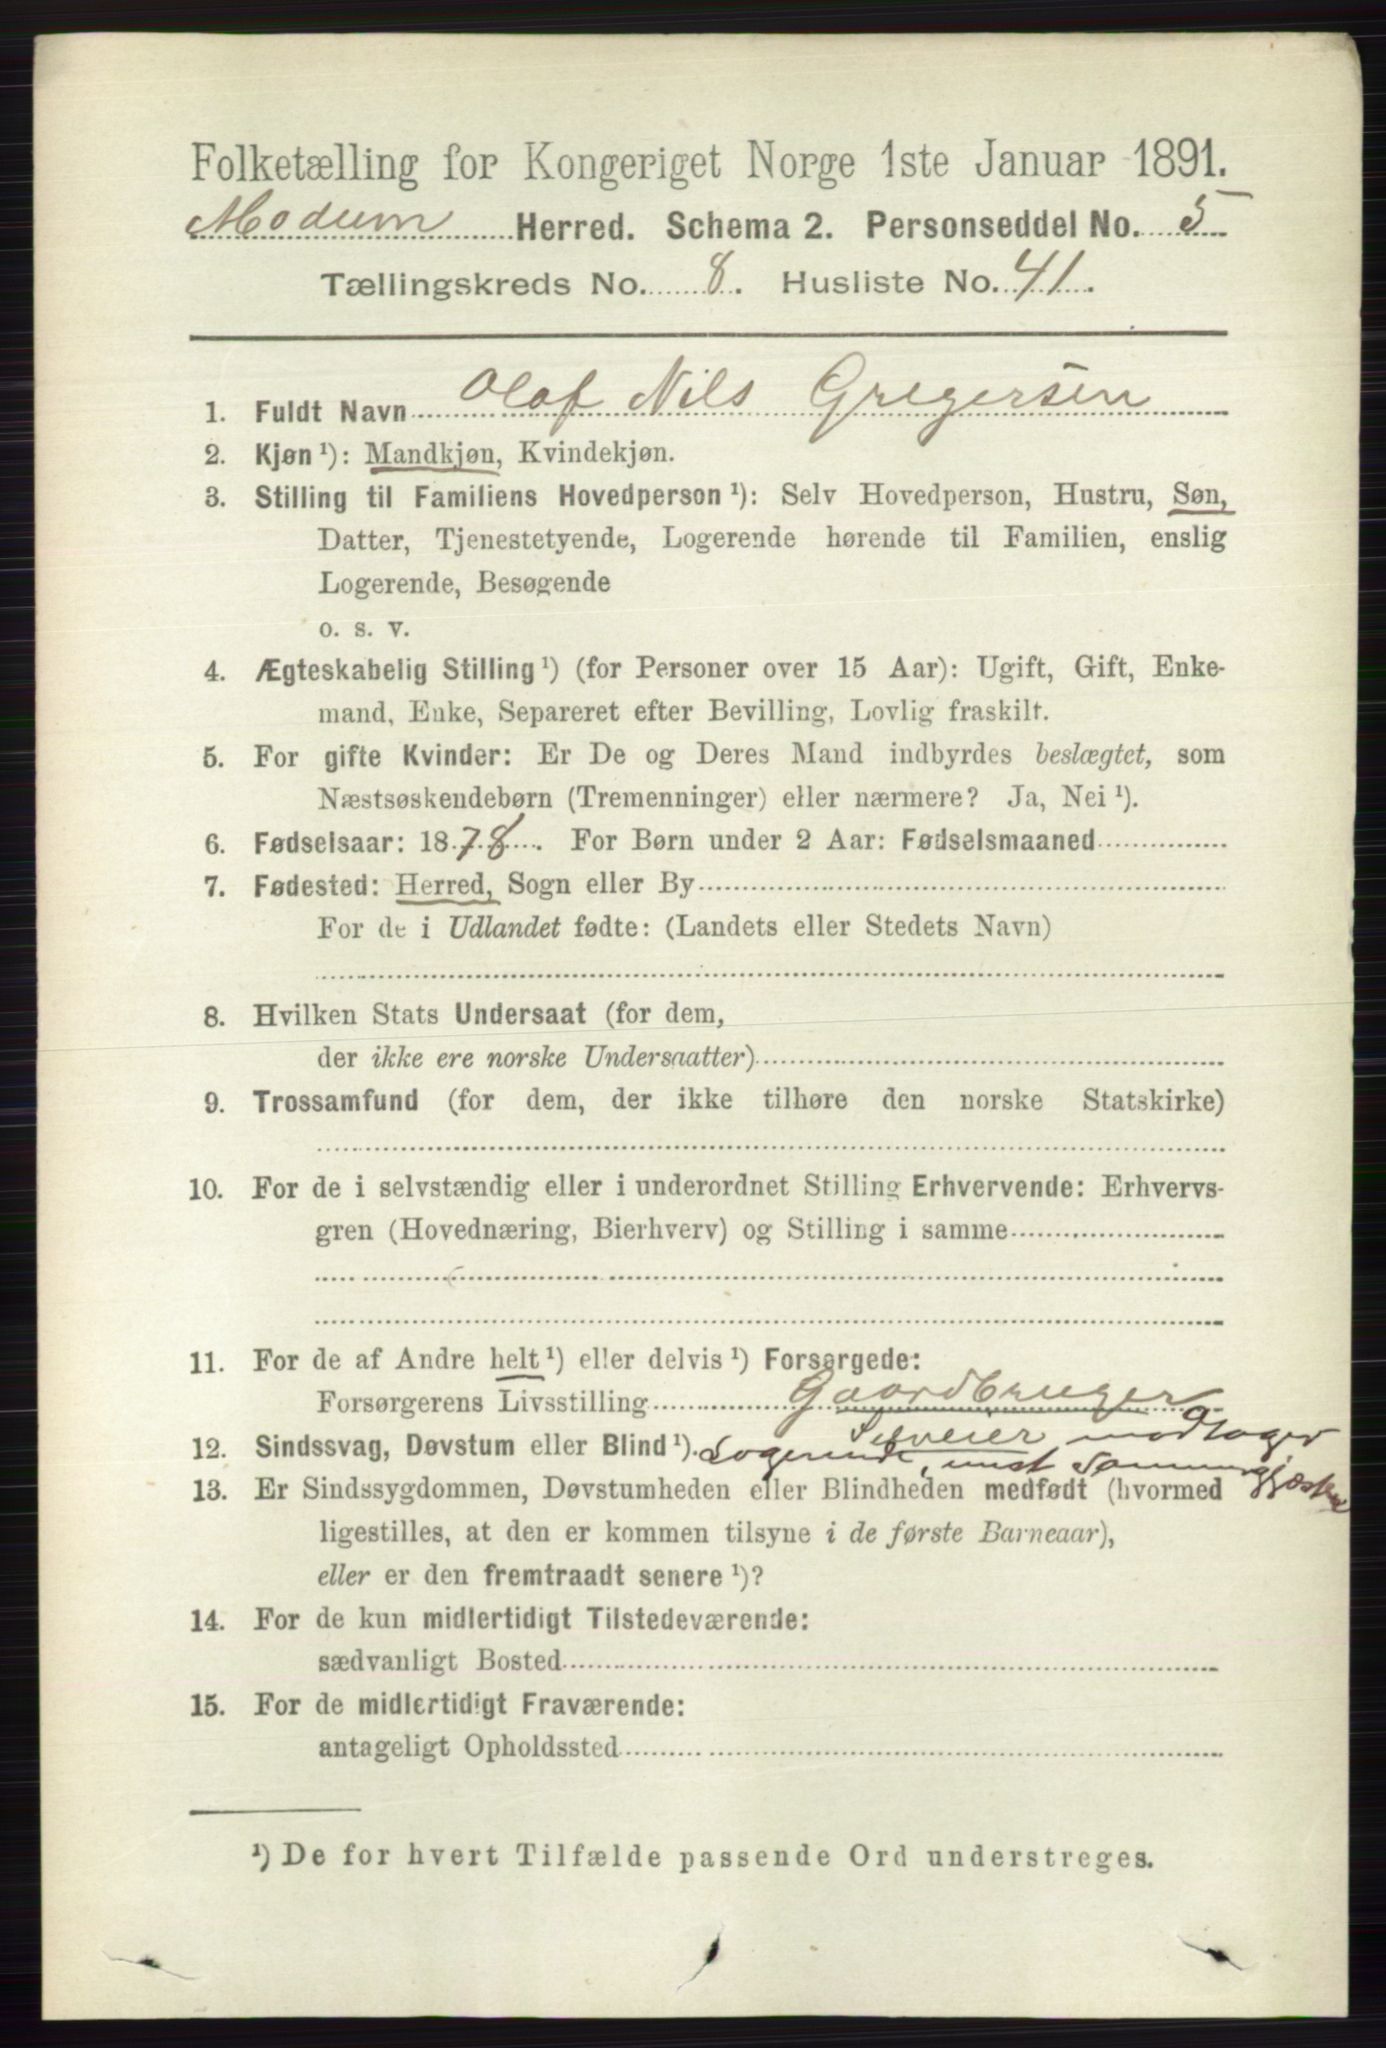 Folketælling for Kongeriget Norge 1ste Januar 1891.
Modum Herred. Schema 2. Personseddel No. 5
Tællingskreds No. 8. Husliste No. 41.
1. Fuldt Navn Olaf Nils Gregersen
2. Kjøn ¹): Mandkjøn, Kvindekjøn.
3. Stilling til Familiens Hovedperson ¹): Selv Hovedperson, Hustru, Søn,
Datter, Tjenestetyende, Logerende hørende til Familien, enslig
Logerende, Besøgende
o. s. v.
4. Ægteskabelig Stilling ¹) (for Personer over 15 Aar): Ugift, Gift, Enke-
mand, Enke, Separeret efter Bevilling, Lovlig fraskilt.
5. For gifte Kvinder: Er De og Deres Mand indbyrdes beslægtet, som
Næstsøskendebørn (Tremenninger) eller nærmere? Ja, Nei ¹).
6. Fødselsaar: 1878. For Børn under 2 Aar: Fødselsmaaned
7. Fødested: Herred, Sogn eller By
For de i Udlandet fødte: (Landets eller Stedets Navn)
8. Hvilken Stats Undersaat (for dem,
der ikke ere norske Undersaatter)
9. Trossamfund (for dem, der ikke tilhøre den norske Statskirke)
10. For de i selvstændig eller i underordnet Stilling Erhvervende: Erhvervs-
gren (Hovednæring, Bierhverv) og Stilling i samme
11. For de af Andre helt ¹) eller delvis ¹) Forsørgede:
Forsørgerens Livsstilling Gaardbruger
Selveier modtager
12. Sindssvag, Døvstum eller Blind ¹). Logerende
13. Er Sindssygdommen, Døvstumheden eller Blindheden medfødt (hvormed
ligestilles, at den er kommen tilsyne i de første Barneaar),
eller er den fremtraadt senere ¹)?
14. For de kun midlertidigt Tilstedeværende:
sædvanligt Bosted
15. For de midlertidigt Fraværende:
antageligt Opholdssted
¹) De for hvert Tilfælde passende Ord understreges.